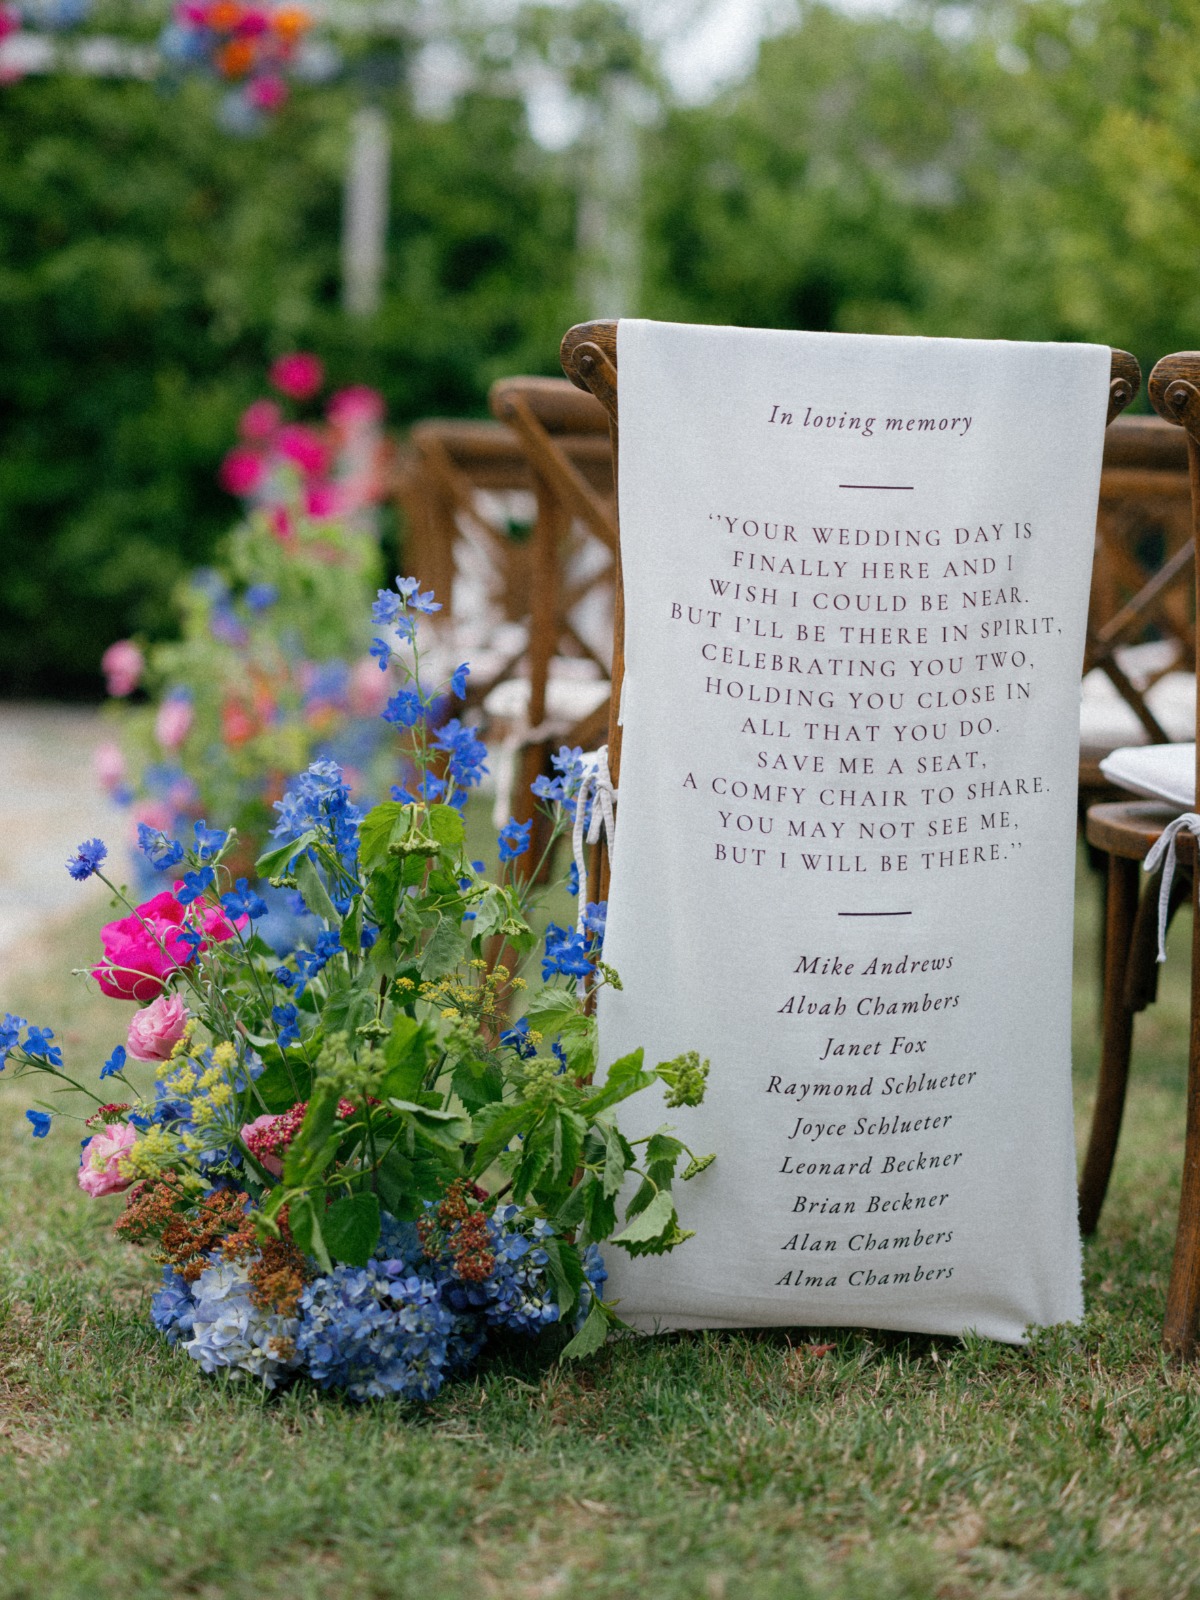 In loving memory
‘’YOUR WEDDING DAY IS
FINALLY HERE AND I
WISH I COULD BE NEAR.
BUT I’LL BE THERE IN SPIRIT,
CELEBRATING YOU TWO,
HOLDING YOU CLOSE IN
ALL THAT YOU DO.
SAVE ME A SEAT,
A COMFY CHAIR TO SHARE.
YOU MAY NOT SEE ME,
BUT I WILL BE THERE.’’
Mike Andrews
Alvah Chambers
Janet Fox
Raymond Schlueter
Joyce Schlueter
Leonard Beckner
Brian Beckner
Alan Chambers
Alma Chambers